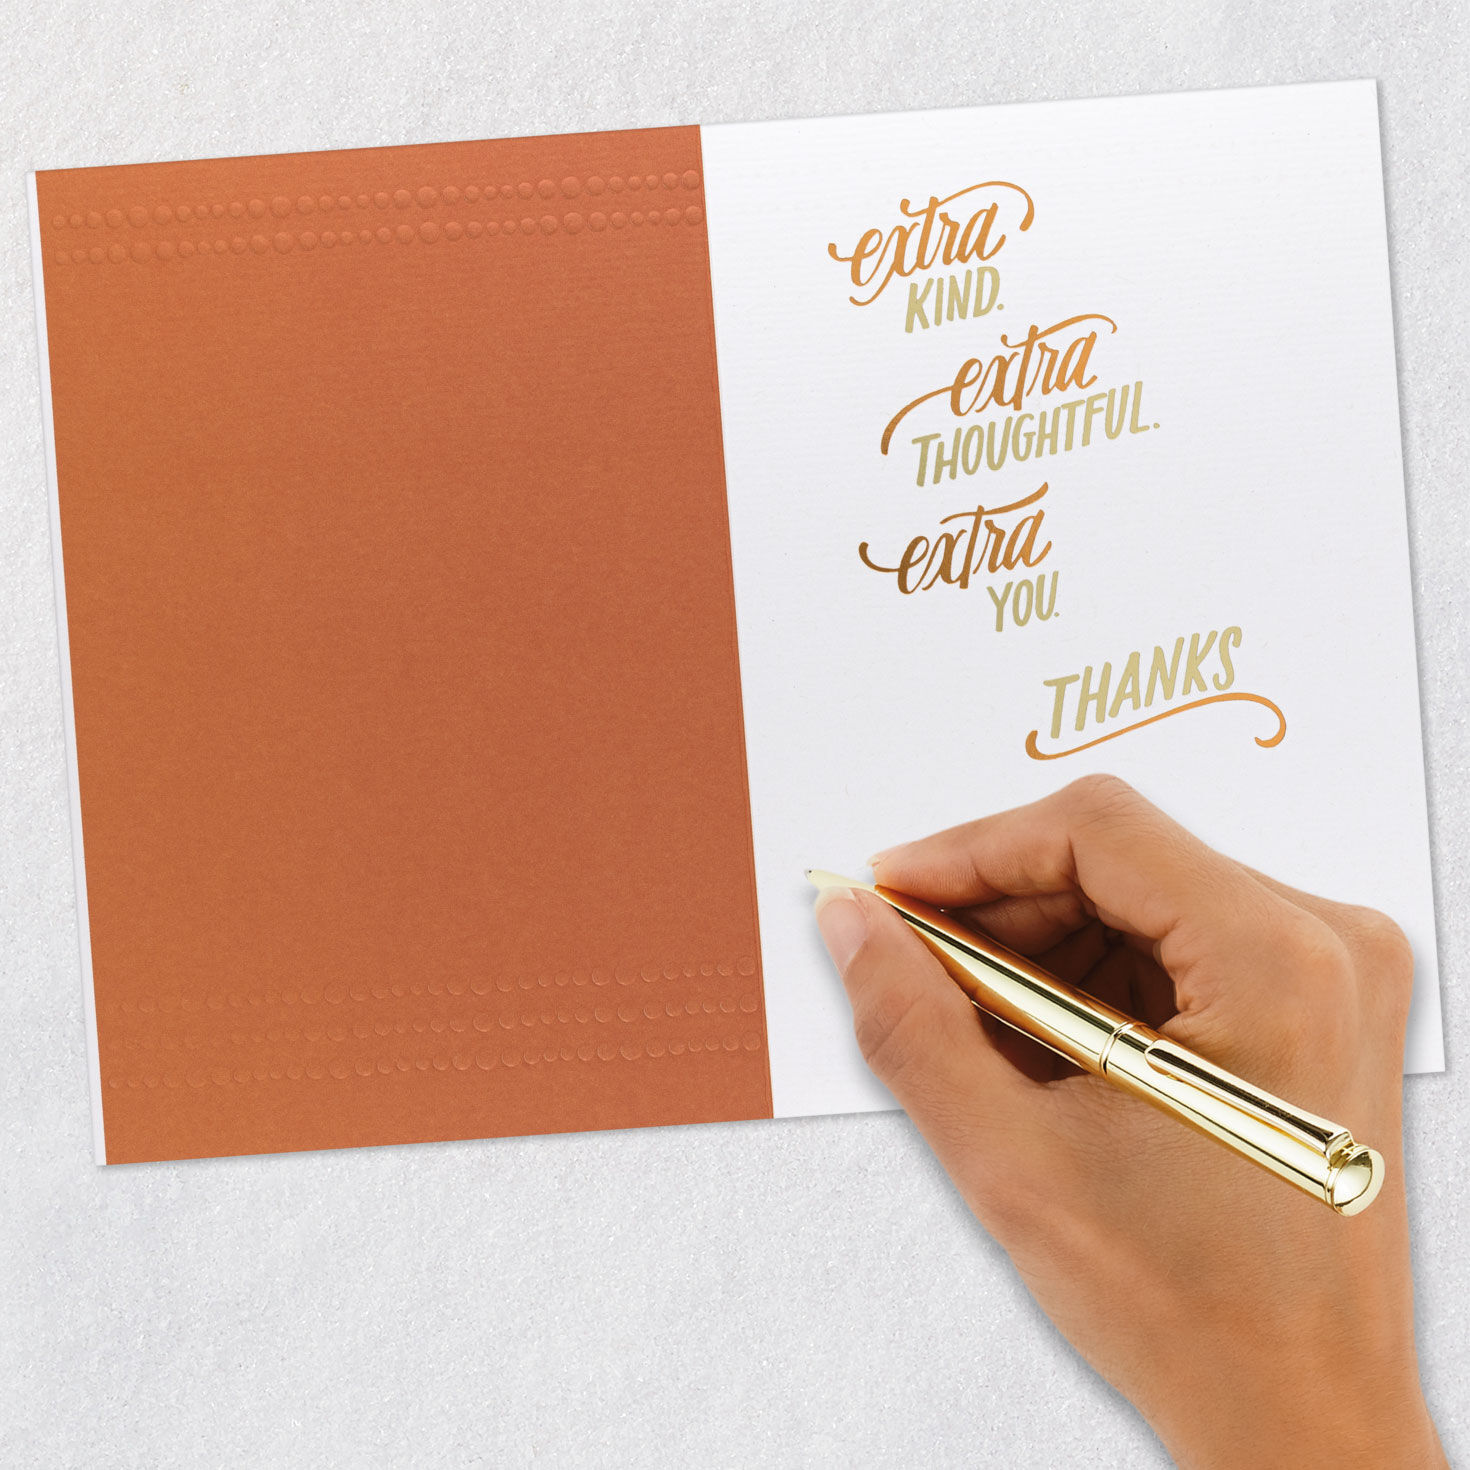 extra
KIND.
extra
THOUGHTFUL.
extra
YOU.
THANKS